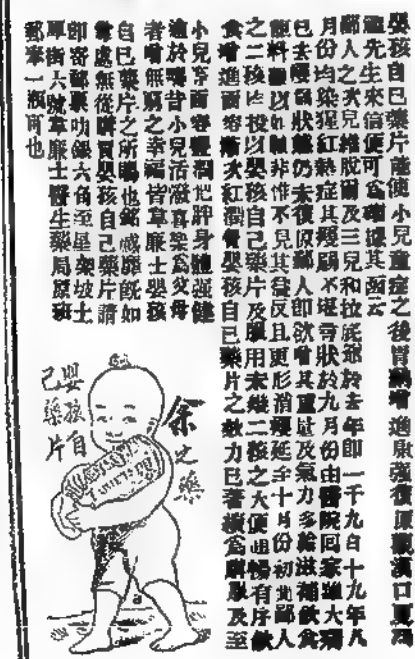 嬰孩自己藥片能使小兒重症之後胃納增進康強復原觀漢口夏
先生來信便可為確據其函云
鄙人之次兒維脫爾及三兒和拉氏爺於去年即一千九百十九年八
月份均染猩紅熱症其瘦弱不堪言狀於九月份由醫院回家雖大
已去瘦弱狀態仍未復原鄙人即欲增其重量及氣力多給滋補飲食
料以非惟不見其益反且更形消瘦延至十月份初鄙人
之二孩均投以嬰孩自己藥片及服用未幾二孩之大便通暢有序飲
食增進面容漸次紅潤嬰孩自己藥片之效力已著及至
小兒等面容輕潤肥胖身體強健
於昔小兒活潑喜樂為父母
者增無窮之幸福皆韋廉士嬰孩
自己藥片之所賜也銘感靡既如
貴處無從購買嬰孩自己藥片請
即寄郵票叻銀六角至星架坡土
庫街六號韋廉士醫生藥局原班
郵奉一瓶可也
余之藥
嬰孩自
己藥片